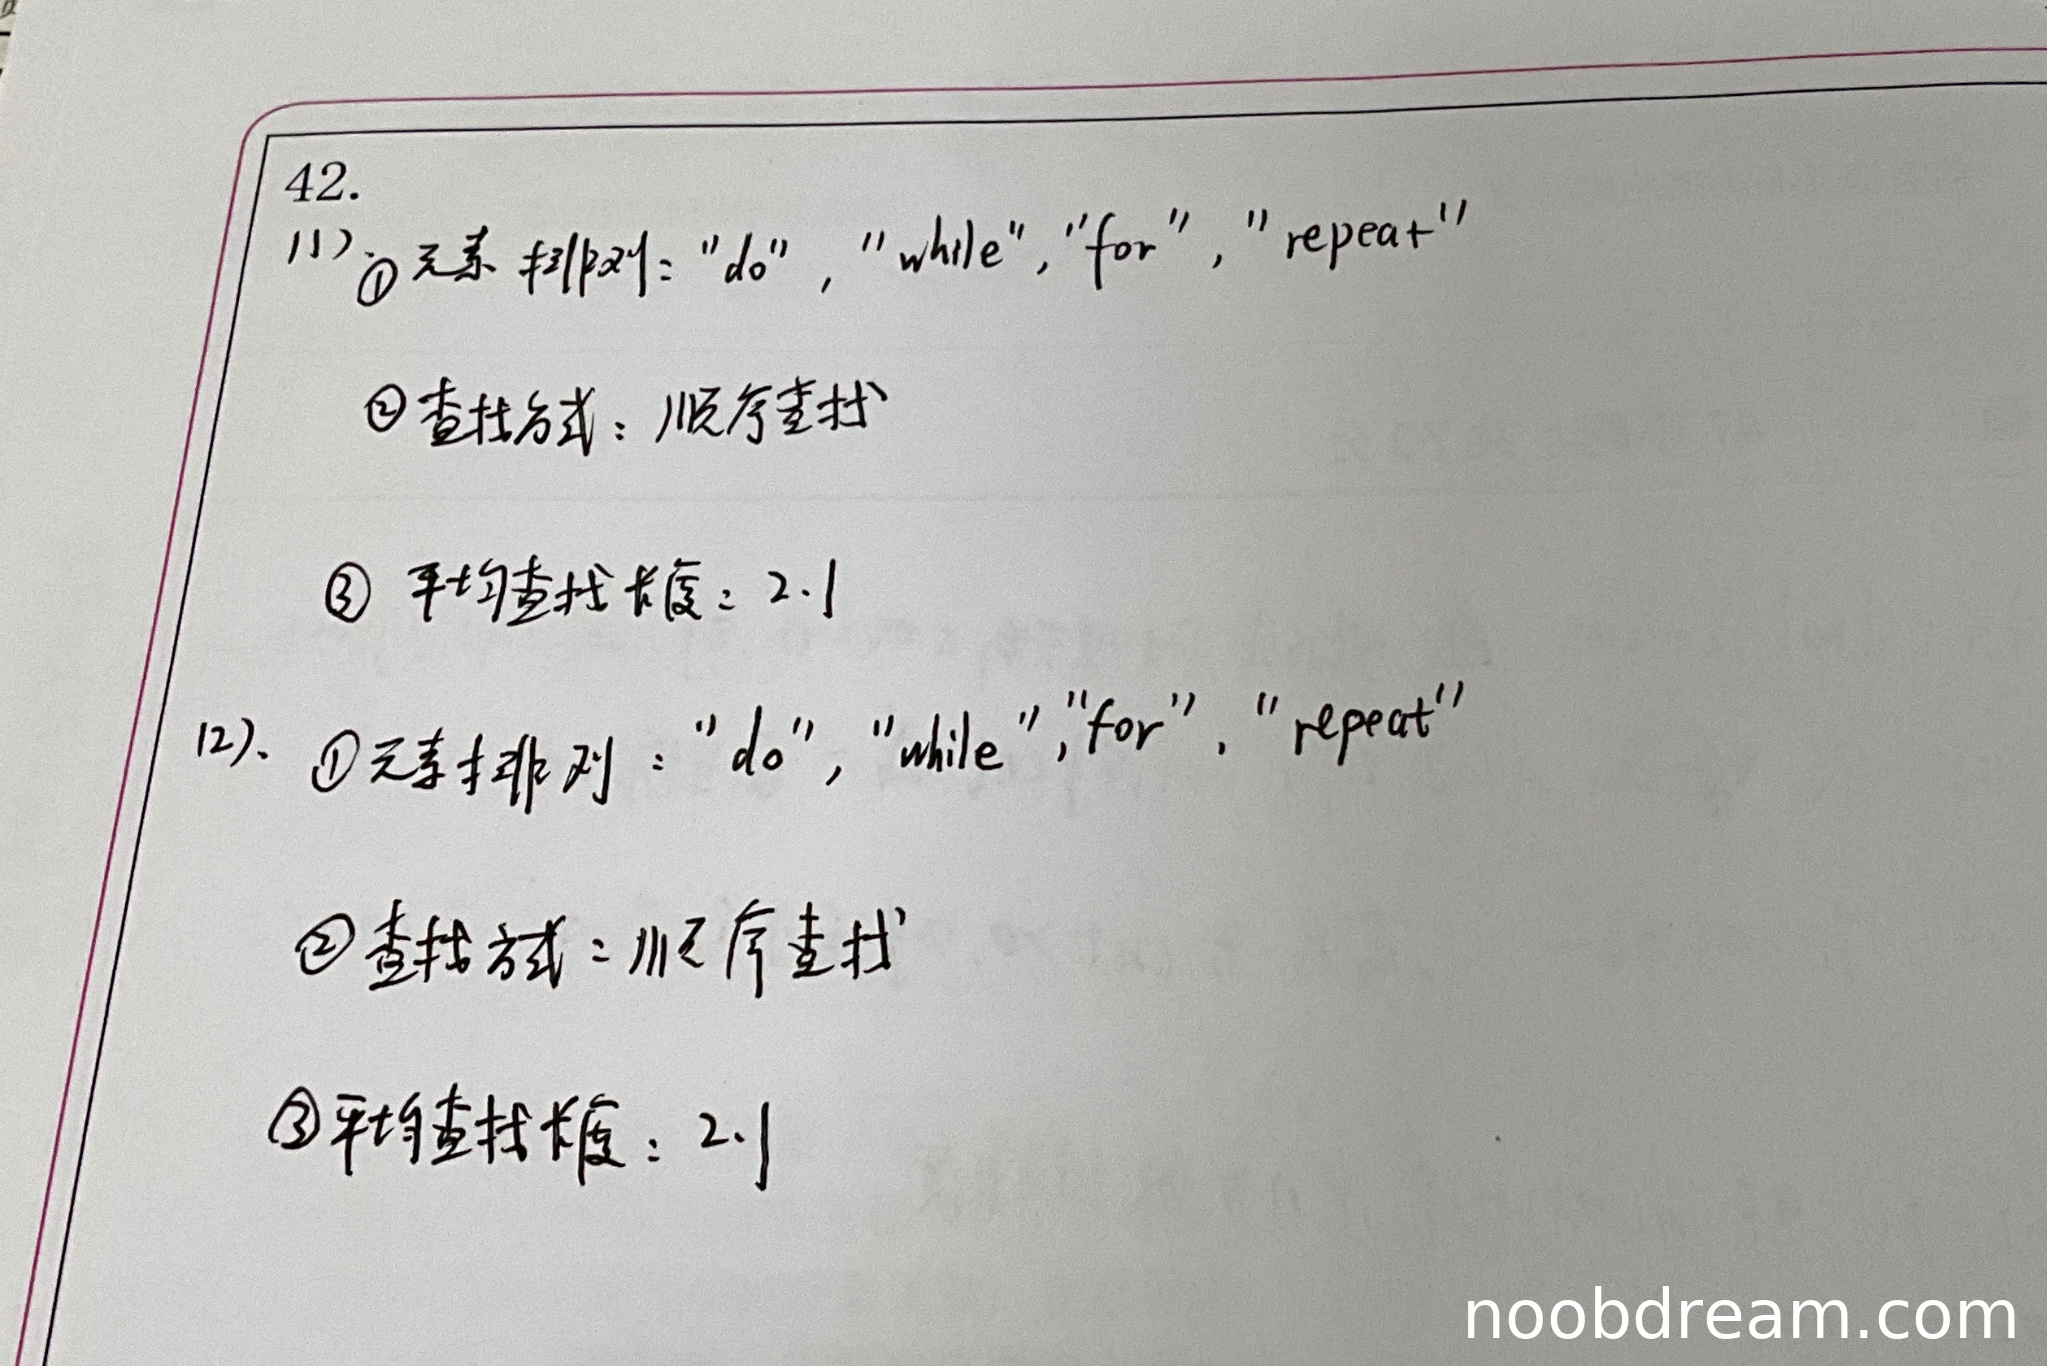 42.
(1). ① 元素排列: "do", "while", "for", "repeat"
② 查找方式: 顺序查找
③ 平均查找长度: 2.1
(2). ① 元素排列: "do", "while", "for", "repeat"
② 查找方式: 顺序查找
③ 平均查找长度: 2.1
noobdream.com